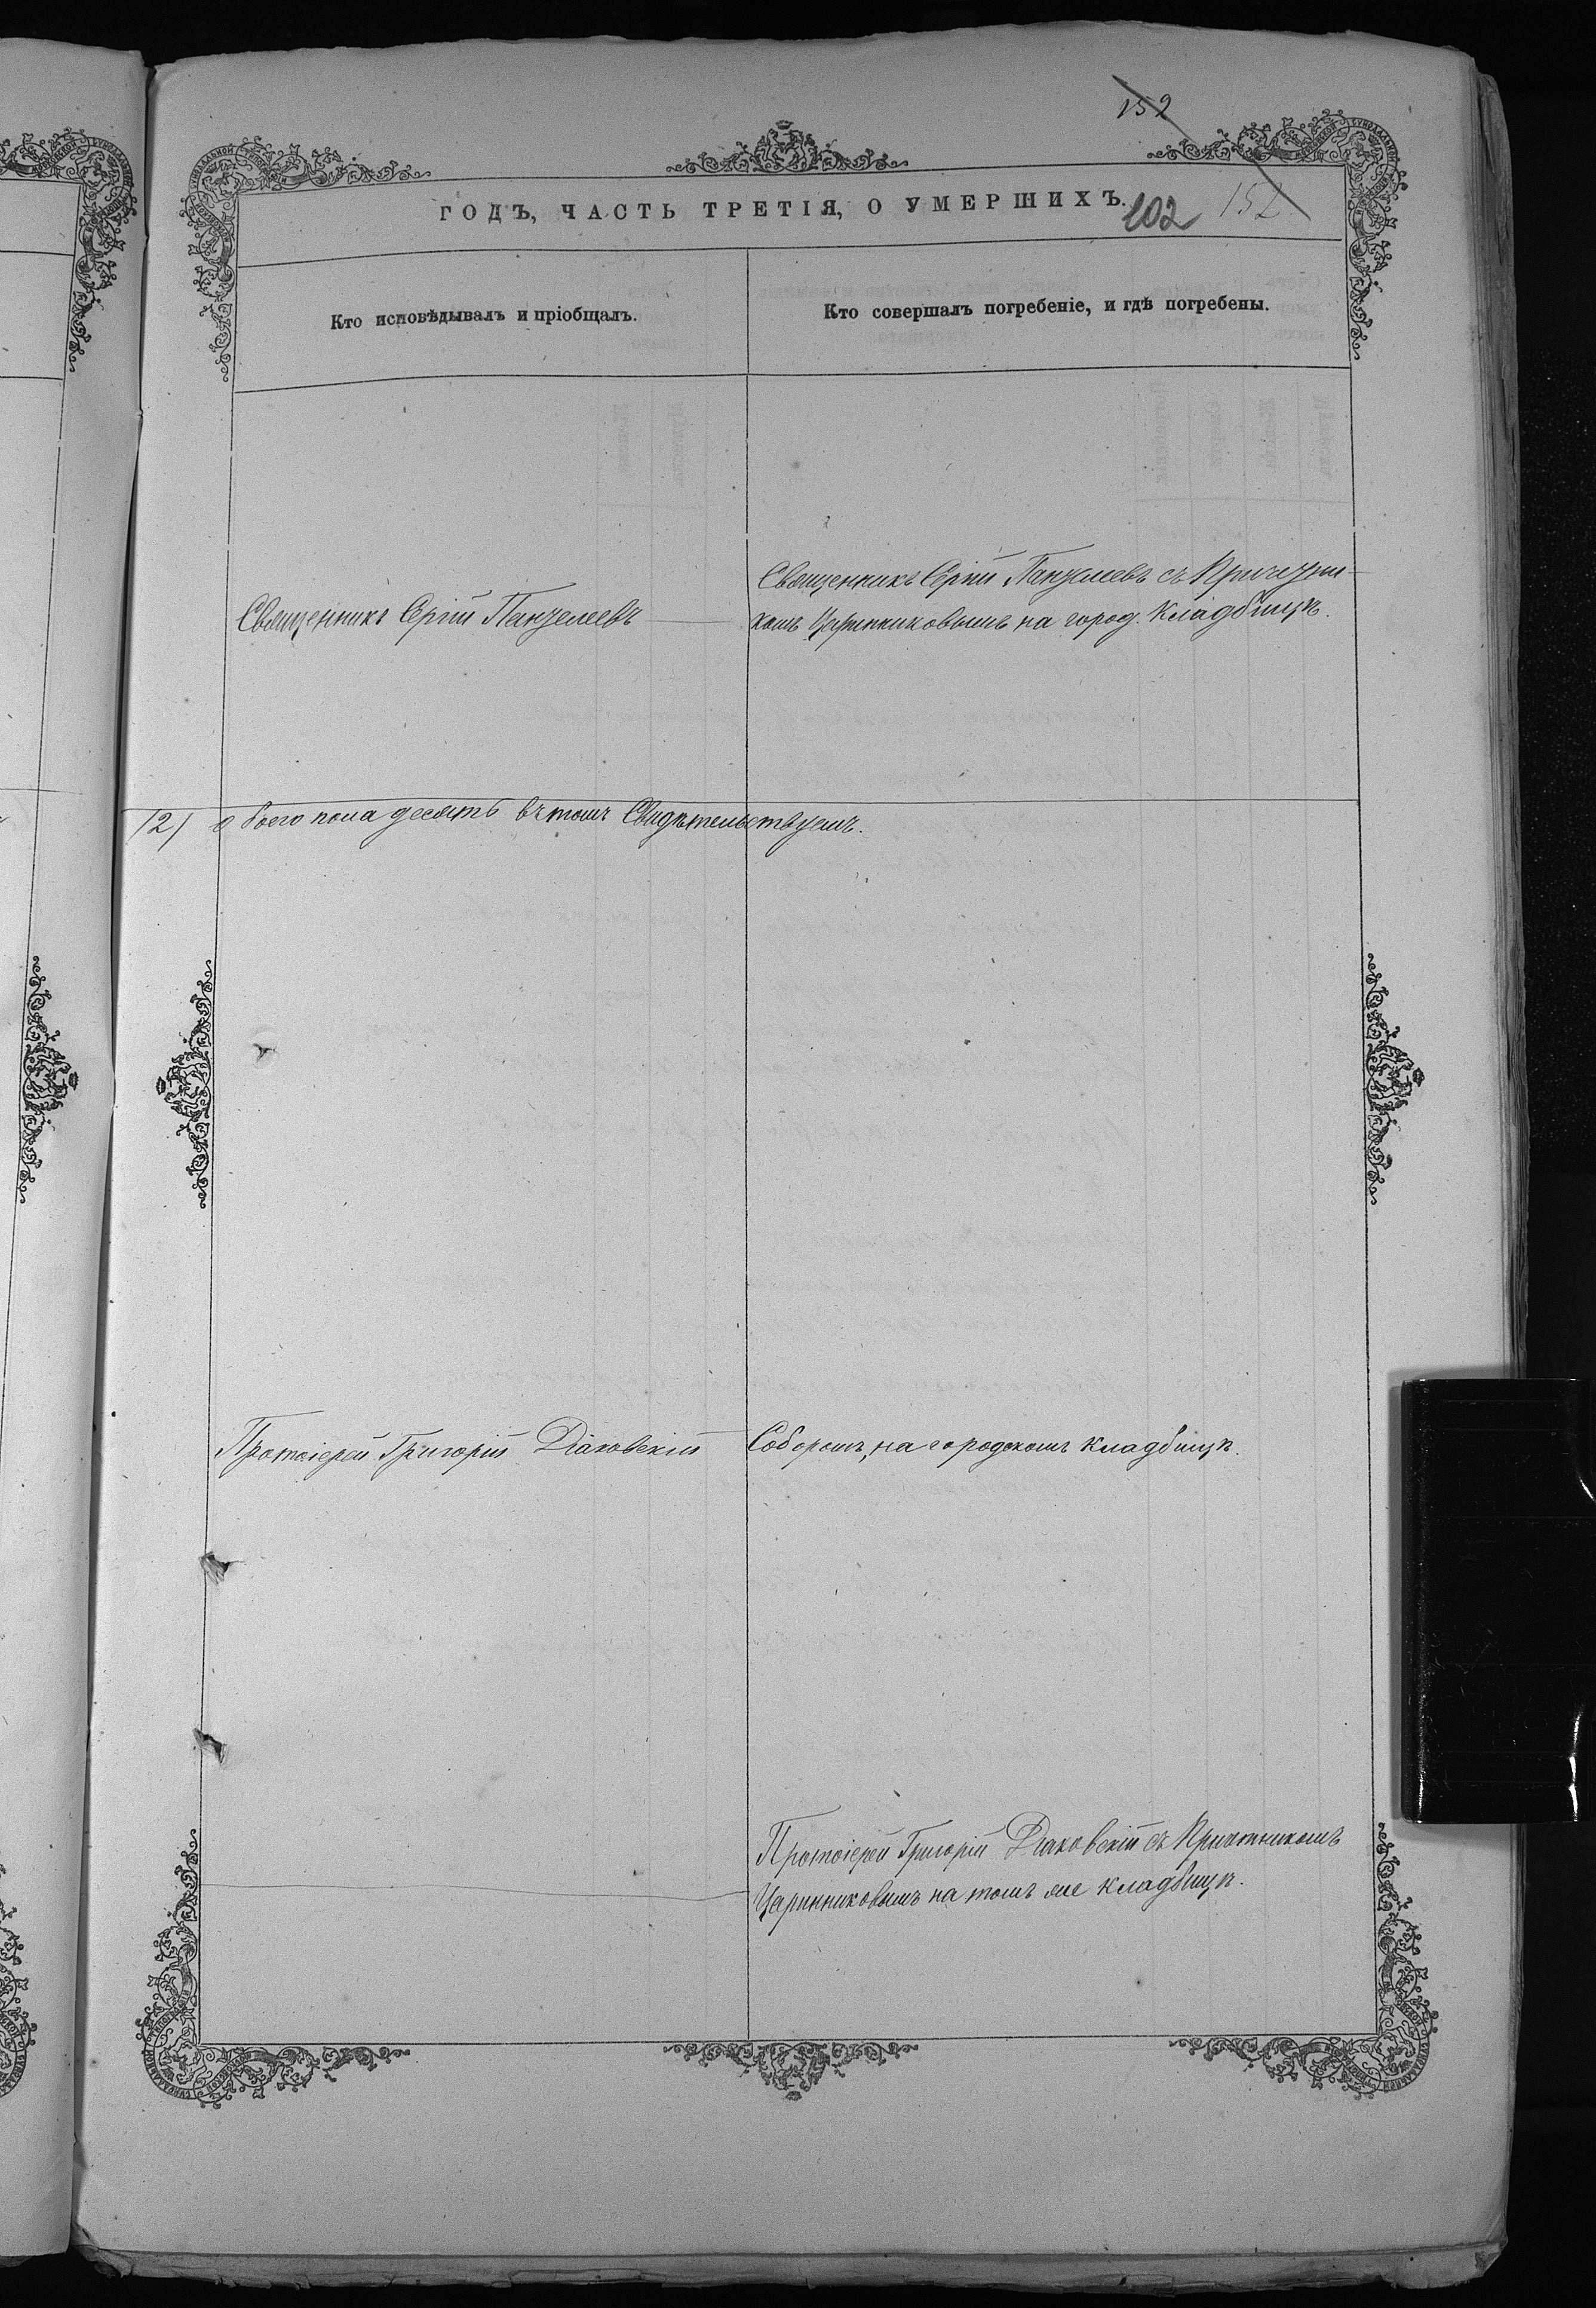 152
ГОДЪ, ЧАСТЬ ТРЕТІЯ, О УМЕРШИХЪ.
102 152
Кто исповѣдывалъ и пріобщалъ.
Кто совершалъ погребеніе, и гдѣ погребены.
Священникъ Сергій Панзелеевъ
Священникъ Сергій Панзелеевъ съ Причетни-
комъ Царинниковымъ на город. Кладбищѣ.
12) обоего пола десять въ томъ Свидѣтельствуемъ.
Протоіерей Григорій Діаковскій
Соборомъ, на городскомъ кладбищѣ.
Протоіерей Григорій Діаковскій съ Причтникомъ
Царинниковымъ на томъ же кладбищѣ.